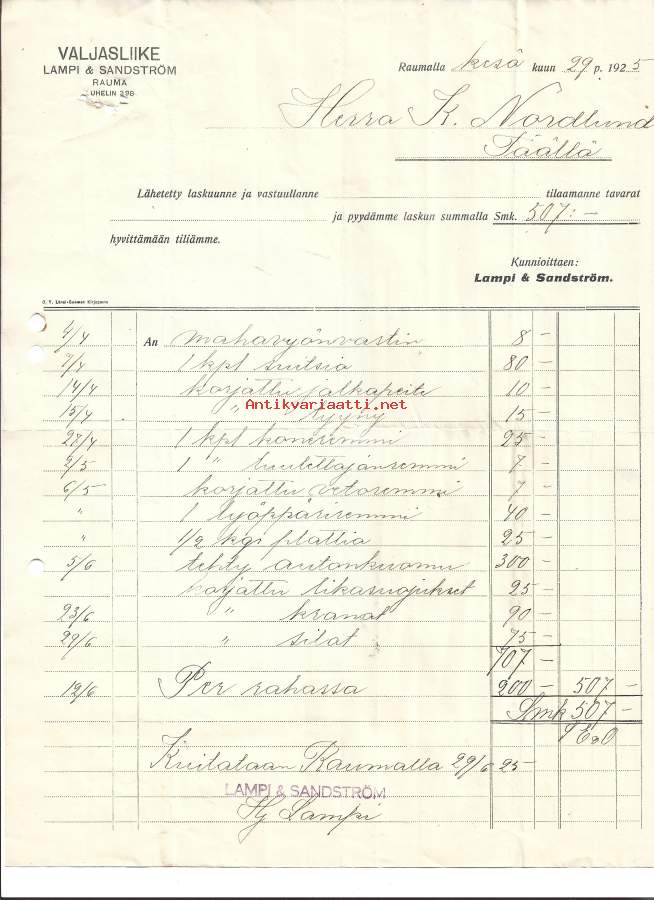 VALJASLIIKE
LAMPI & SANDSTRÖM
RAUMA
UHELIN 398
Raumalla kesä kuun 29 p. 1925
Herra K. Nordlund
Täällä
Lähetetty laskuunne ja vastuullanne tilaamanne tavarat
ja pyydämme laskun summalla Smk. 507:-
hyvittämään tiliämme.
Kunnioittaen:
Lampi & Sandström.
O. Y. Länsi-Suomen Kirjapaino
4/4 An mahavyönvastin 8 -
7/4 1 kpl suitsia 80 -
14/4 korjattu jalkapeite 10 -
Antikvariaatti.net
15/4 " tyyny 15 -
27/4 1 kpl koneremmi 25 -
2/5 1 " tuulettajanremmi 7 -
6/5 korjattu vetoremmi 7 -
" 1 työppäriremmi 40 -
" 1/2 kgi plattia 25 -
5/6 tehty autonkuomu 300 -
korjattu likasuojukset 25 -
23/6 " kranat 90 -
29/6 " silat 75 -
707 -
12/6 Per rahassa 200 - 507 -
Smk 507 -
Kuitataan Raumalla 29/6 25 -
LAMPI & SANDSTRÖM
Hj Lampi